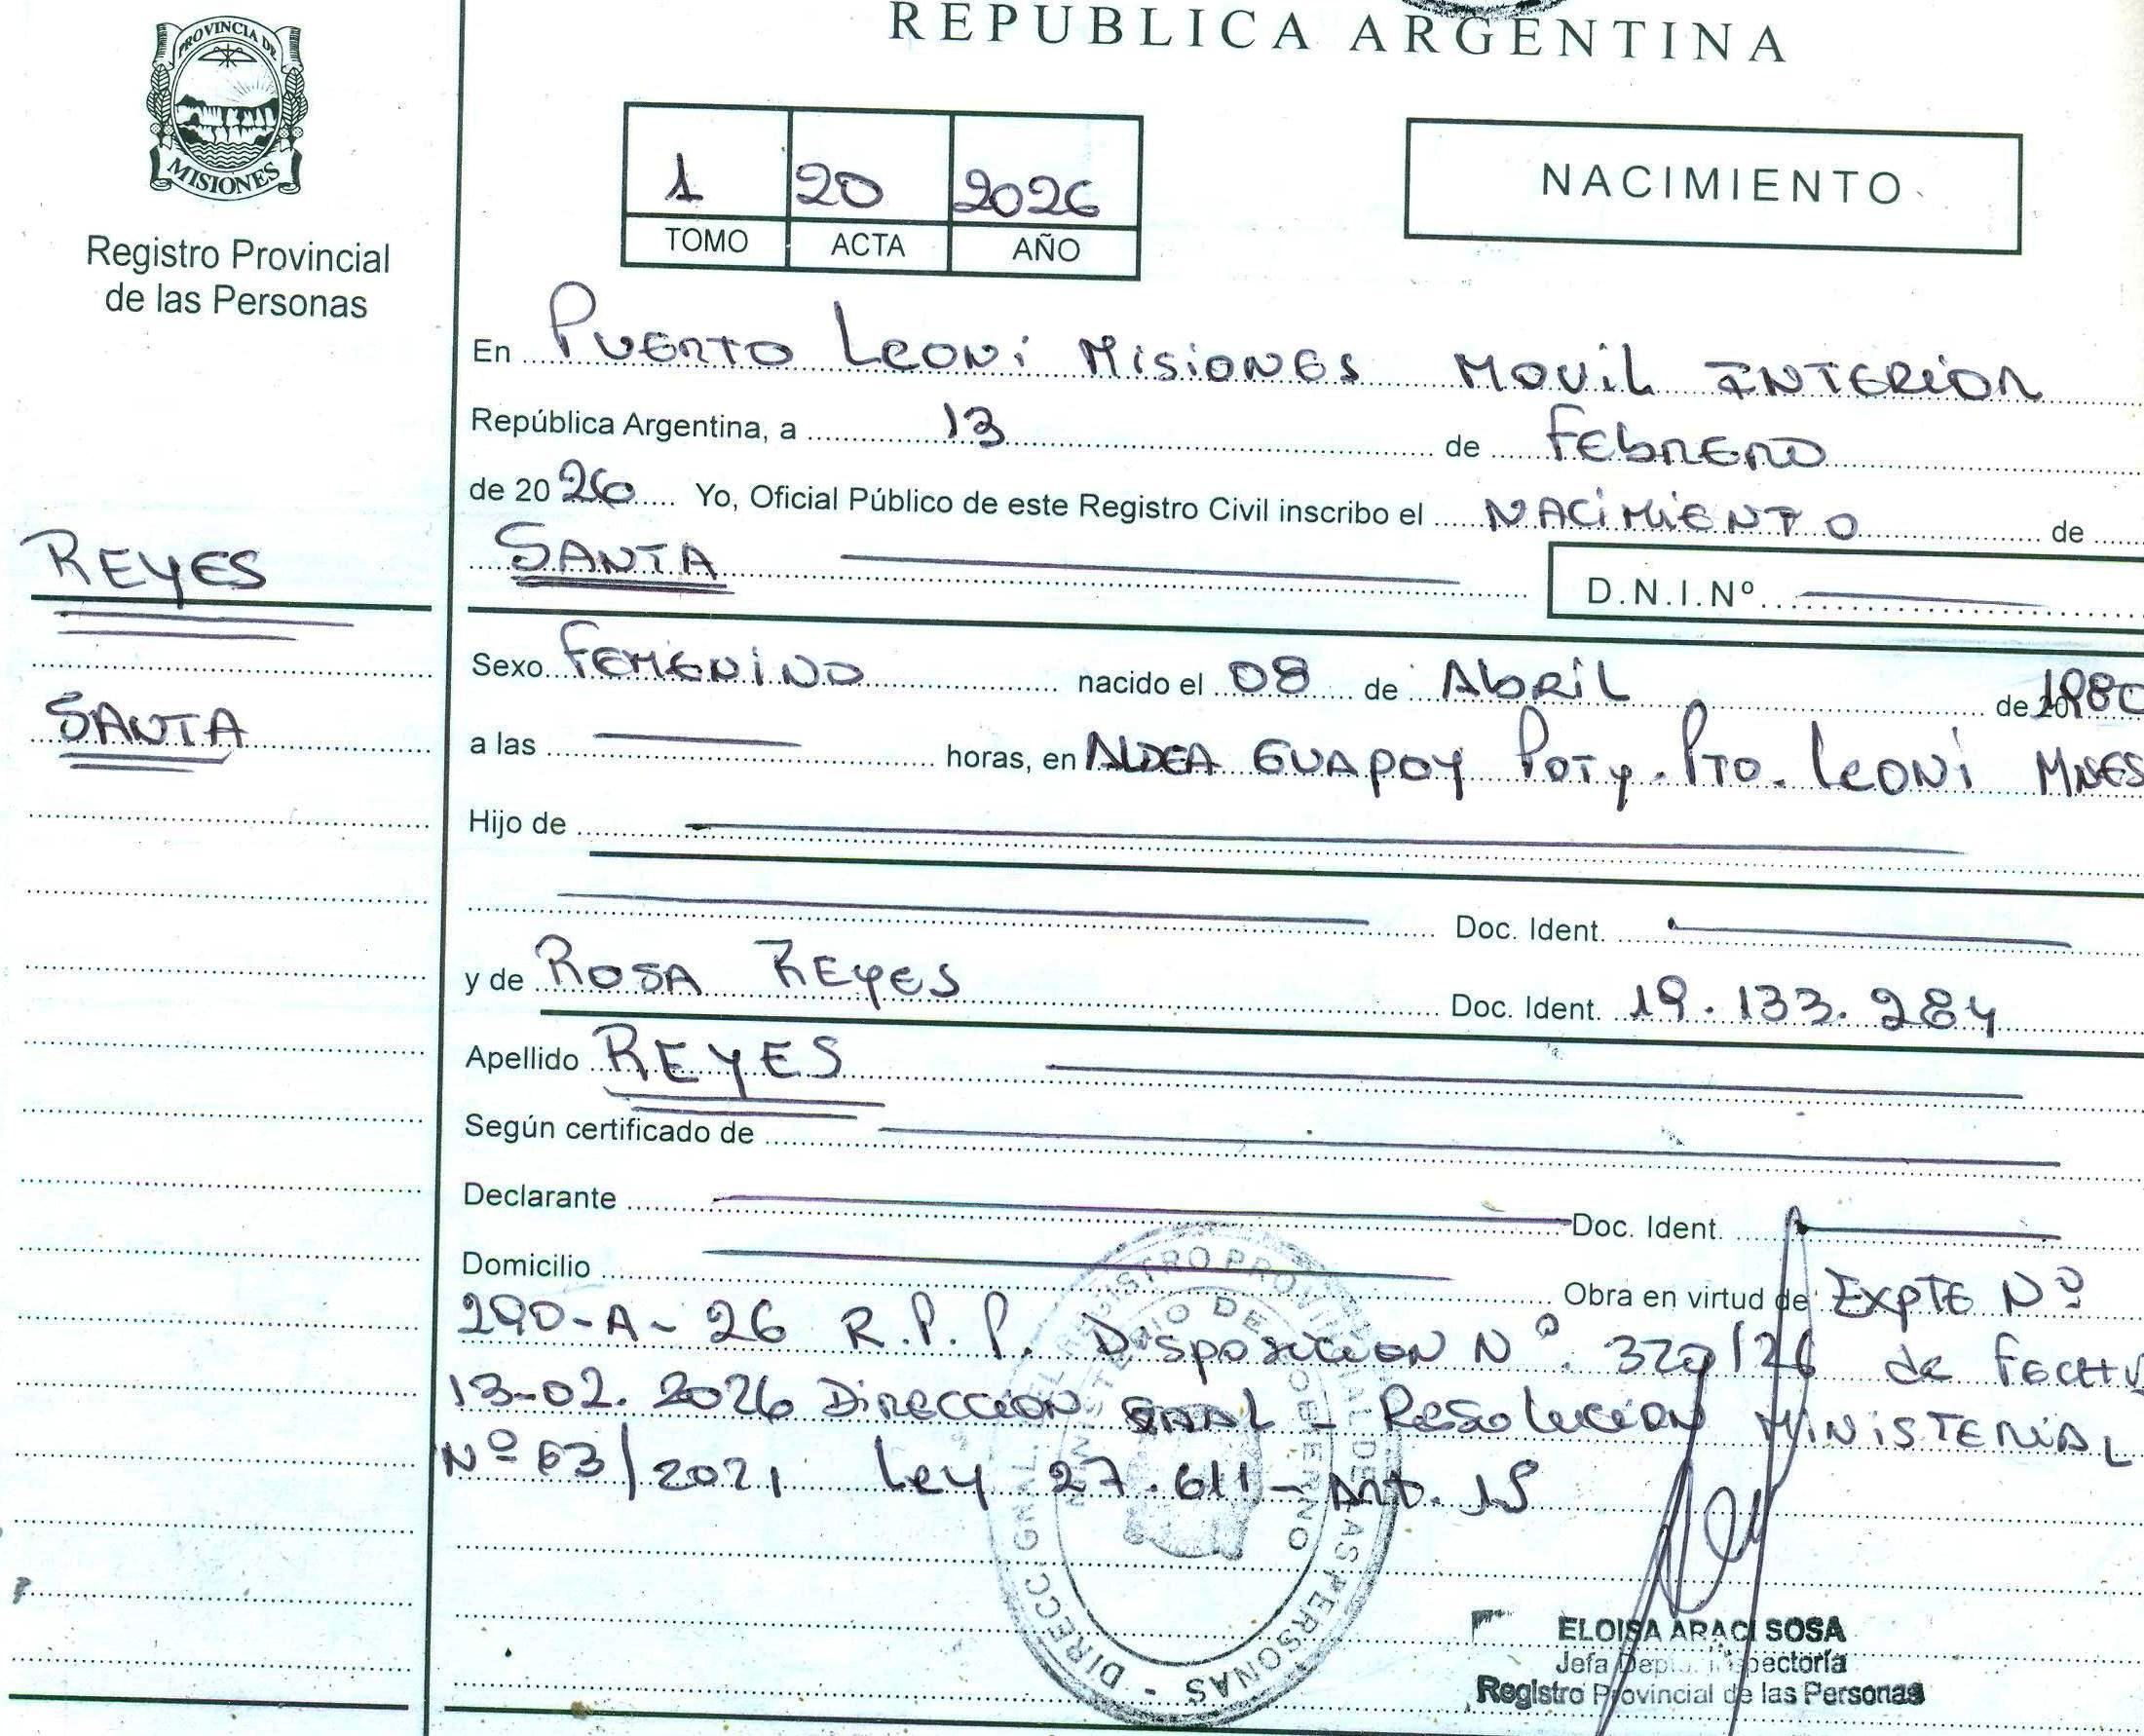 REPUBLICA ARGENTINA
PROVINCIA DE
MISIONES
Registro Provincial
de las Personas
1 20 2026
TOMO ACTA AÑO
NACIMIENTO
En PUERTO LEONI MISIONES MOVIL INTERIOR
República Argentina, a 13 de FEBRERO
de 20 26 Yo, Oficial Público de este Registro Civil inscribo el NACIMIENTO de
REYES
SANTA
SANTA D.N.I.Nº
Sexo FEMENINO nacido el 08 de Abril de 1980
a las horas, en ALDEA GUAPOY POTY. PTO. LEONI MNES
Hijo de
Doc. Ident.
y de ROSA REYES Doc. Ident. 19.133.284
Apellido REYES
Según certificado de
Declarante Doc. Ident.
Domicilio Obra en virtud de EXPTE Nº
290-A-26 R.P.P. DISPOSICION Nº. /26 de FECHA
13-02.2026 DIRECCION GRAL - RESOLUCION MINISTERIAL
Nº 63/2021 Ley 27.611 - Art. 15
DIRECC. GRAL. DEL REGISTRO PROVINCIAL DE LAS PERSONAS -
MINISTERIO DE GOBIERNO
ELOISA ARACI SOSA
Jefa Depto. Inspectoría
Registro Provincial de las Personas